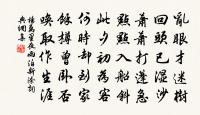 亂眼才迷樹
回頭已濕沙
蕭蕭打篷急
點點入船斜
此夕初為客
何時卻到家
餘樽曾卧否
喚取作生涯
楊萬里夜雨泊新淦詞
典網集